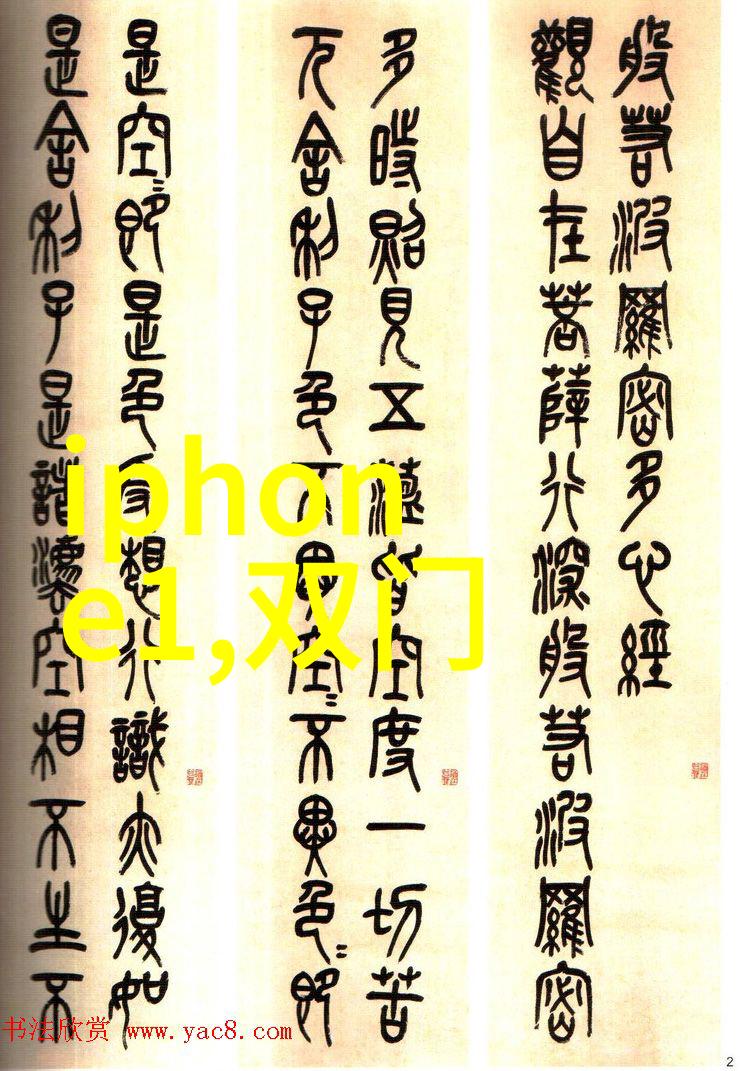 般若波羅密多心經
觀自在菩薩行深般若波羅密
多時照見五蘊皆空度一切苦
厄舍利子色不異空〻不異色〻即
是空〻即是色受想行識亦復如
是舍利子是諸法空相不生不
iphon
e1,双门
书法欣赏 www.yac8.com
2